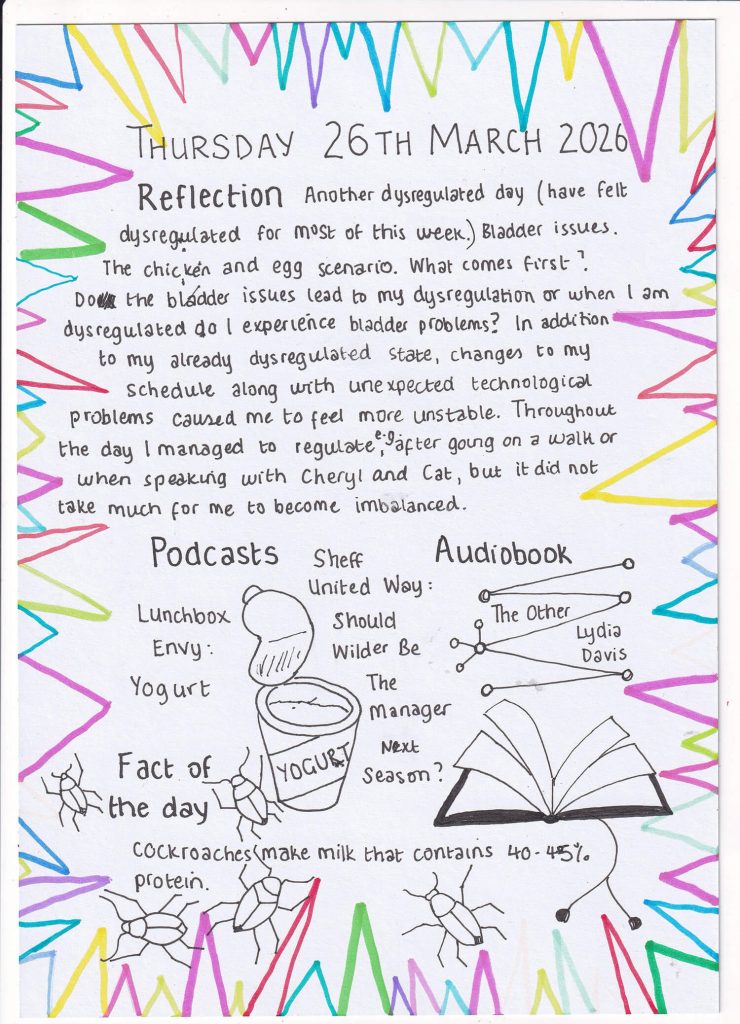 THURSDAY 26TH MARCH 2026
Reflection Another dysregulated day (have felt
dysregulated for most of this week.) Bladder issues.
The chicken and egg scenario. What comes first?
Do the bladder issues lead to my dysregulation or when I am
dysregulated do I experience bladder problems? In addition
to my already dysregulated state, changes to my
schedule along with unexpected technological
problems caused me to feel more unstable. Throughout
the day I managed to regulate, e.g after going on a walk or
when speaking with Cheryl and Cat, but it did not
take much for me to become imbalanced.
Podcasts
Lunchbox
Envy:
Yogurt
YOGURT
Sheff
United Way:
Should
Wilder Be
The
Manager
Next
Season?
Audiobook
The Other
Lydia
Davis
Fact of
the day
Cockroaches make milk that contains 40-45%
protein.